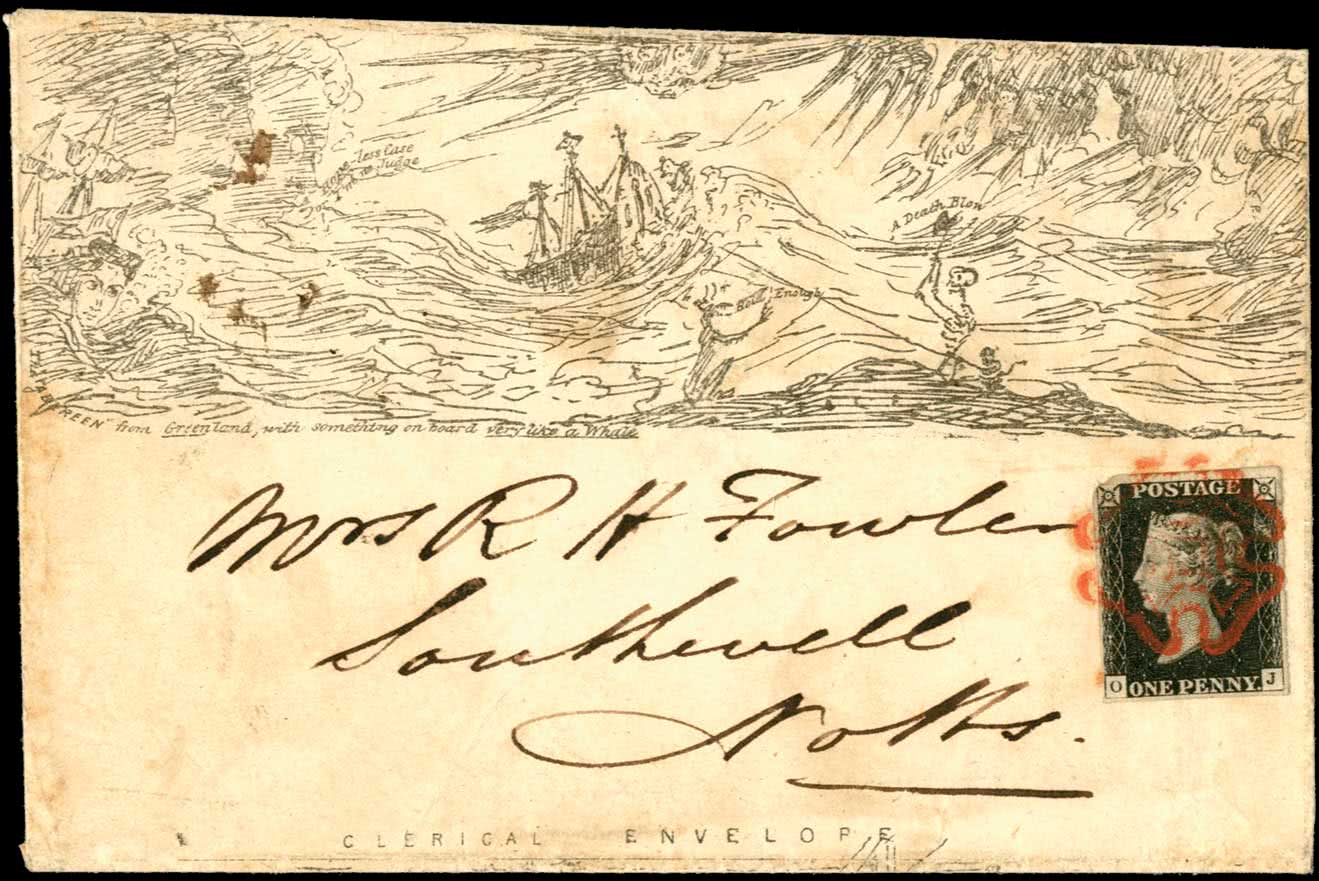 less Case
Judge
A Death Blow
Bold Enough
from Greenland, with something on board very like a Whale
Mrs R H Fowler
Southwell
Notts.
POSTAGE
O ONE PENNY. J
CLERICAL ENVELOPE